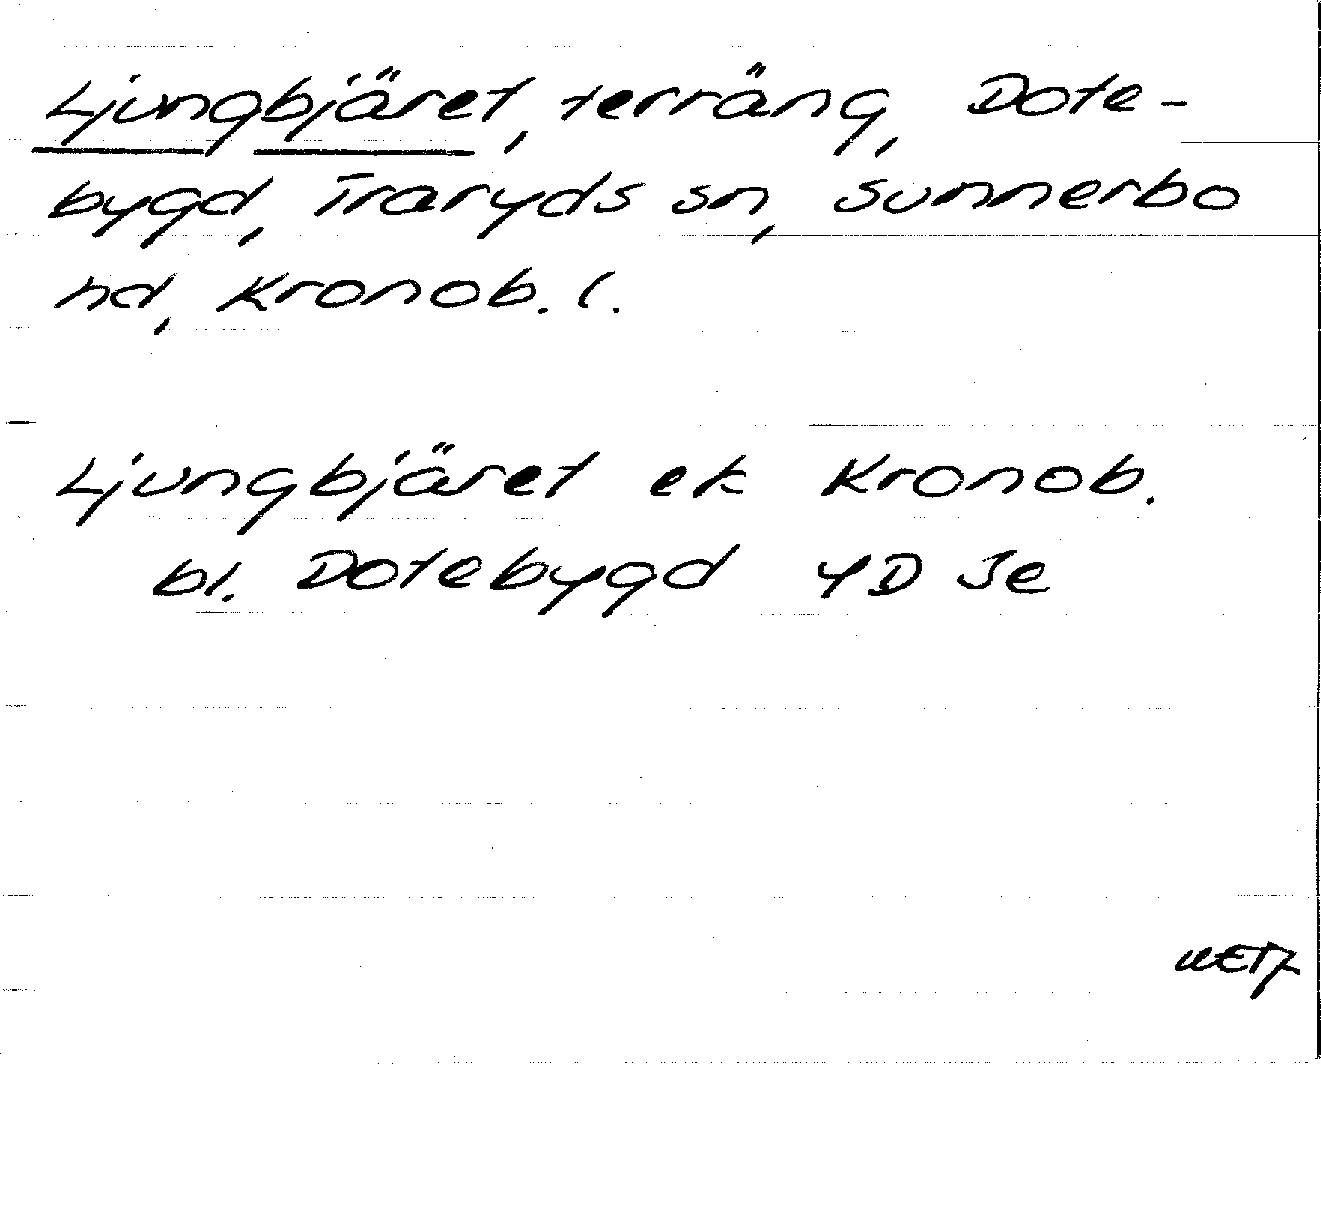 Ljungbjäret, terräng, Dote-
bygd, Traryds sn, Sunnerbo
hd, Kronob. l.
Ljungbjäret ek Kronob.
bl. Dotebygd 4D Je